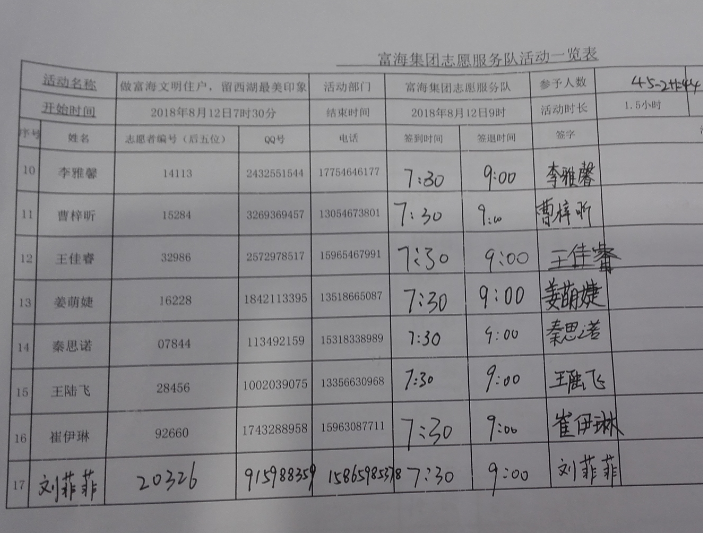 富海集团志愿服务队活动一览表
活动名称 做富海文明住户，留西湖最美印象 活动部门 富海集团志愿服务队 参予人数
开始时间 2018年8月12日7时30分 结束时间 2018年8月12日9时 活动时长 1.5小时
序号 姓名 志愿者编号（后五位） QQ号 电话 签到时间 签退时间 签字
10 李雅馨 14113 2432551544 17754646177 7:30 9:00 李雅馨
11 曹梓昕 15284 3269369457 13054673801 7:30 9:00 曹梓昕
12 王佳睿 32986 2572978517 15965467991 7:30 9:00 王佳睿
13 姜萌婕 16228 1842113395 13518665087 7:30 9:00 姜萌婕
14 秦思诺 07844 113492159 15318338989 7:30 9:00 秦思诺
15 王陆飞 28456 1002039075 13356630968 7:30 9:00 王陆飞
16 崔伊琳 92660 1743288958 15963087711 7:30 9:00 崔伊琳
17 刘菲菲 20326 915988359 15865985378 7:30 9:00 刘菲菲